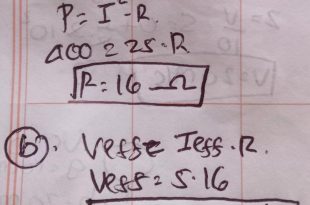 P = I² - R.
400 = 25 . R
R = 16 Ω
(b). Veff = Ieff . R.
Veff = 5 . 16